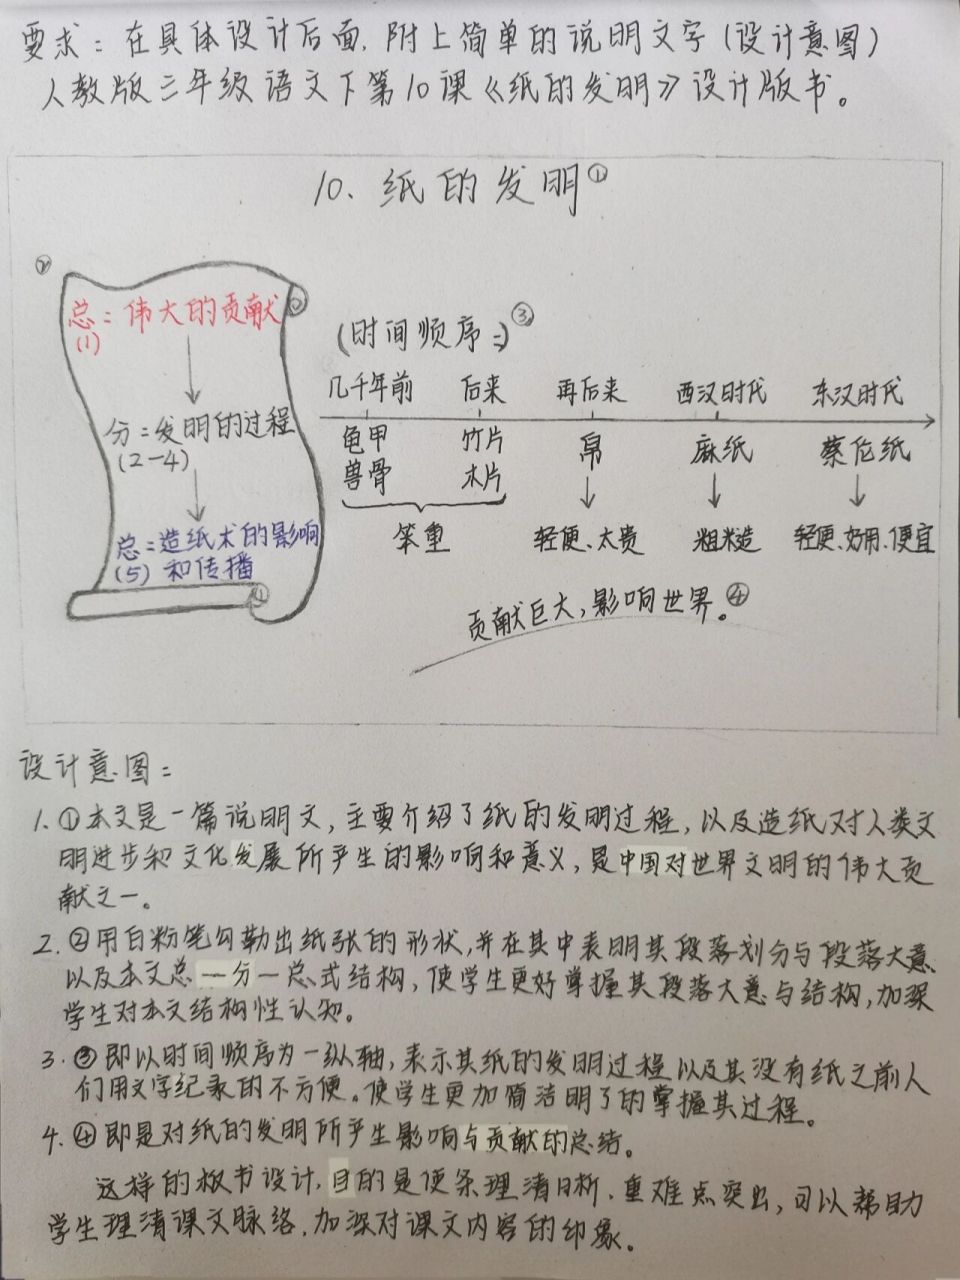 要求：在具体设计后面，附上简单的说明文字（设计意图）
人教版三年级语文下第10课《纸的发明》设计版书。
10、纸的发明①
②
总：伟大的贡献
(1)
分：发明的过程
(2-4)
总：造纸术的影响
(5) 和传播
(时间顺序：)③
几千年前 后来 再后来 西汉时代 东汉时代
龟甲 竹片 帛 麻纸 蔡伦纸
兽骨 木片
笨重 轻便、太贵 粗糙 轻便、好用、便宜
贡献巨大，影响世界。④
设计意图：
1. ①本文是一篇说明文，主要介绍了纸的发明过程，以及造纸对人类文
明进步和文化发展所产生的影响和意义，是中国对世界文明的伟大贡
献之一。
2. ②用白粉笔勾勒出纸张的形状，并在其中表明其段落划分与段落大意
以及本文总一分一总式结构，使学生更好掌握其段落大意与结构，加深
学生对本文结构性认知。
3. ③即以时间顺序为一纵轴，表示其纸的发明过程以及其没有纸之前人
们用文字纪录的不方便。使学生更加简洁明了的掌握其过程。
4. ④即是对纸的发明所产生影响与贡献的总结。
这样的板书设计，目的是使条理清晰、重难点突出，可以帮助
学生理清课文脉络，加深对课文内容的印象。